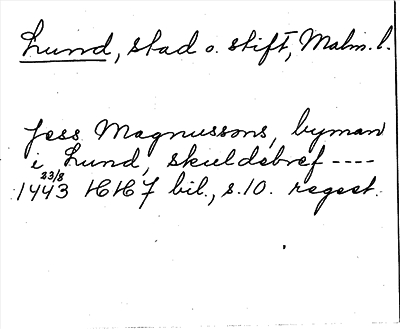 Lund, stad o. stift, Malm. l.
Jess Magnussons, byman
i Lund, skuldebref ----
23/8
1443 HH7 bil., s. 10. regest.